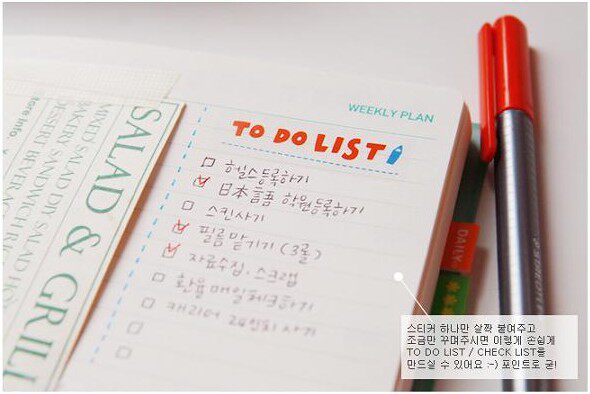 WEEKLY PLAN
TO DO LIST
헬스등록하기
日本語 학원등록하기
스킨사기
필름맡기기 (3롤)
자료수집, 스크랩
환율매일체크하기
캐리어 24인치 사기
tore Info
MIXED SALAD DIY SALAD
BAKERY SANDWICH
DESSERT BEVER
SALAD & GRILL
DAILY
스티커 하나만 살짝 붙여주고
조금만 꾸며주시면 이렇게 손쉽게
TO DO LIST / CHECK LIST를
만드실 수 있어요 :-) 포인트로 굳!